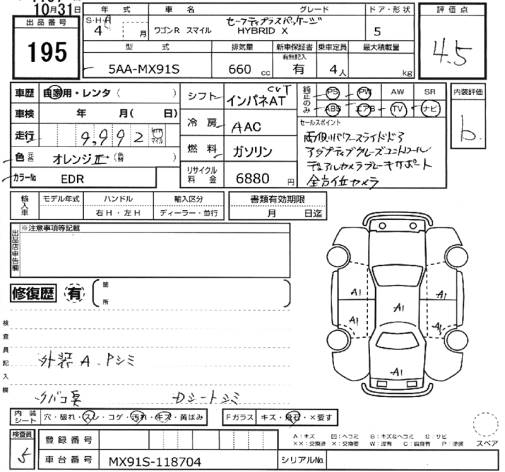 10月31日
出品番号
195
年式 車名 グレード ドア・形状
S・H・A
4 月 ワゴンR スマイル セーフティプラスパッケージ HYBRID X 5
型式 排気量 新車保証書 乗車定員 最大積載量
有無記入
5AA-MX91S 660 cc 有 4人 kg
評価点
4.5
車歴 自家用・レンタ ( )
車検 年 月( 日)
走行 9,992
色 オレンジⅡ
カラーNo EDR
シフト CVT インパネAT
冷房 AAC
燃料 ガソリン
リサイクル料金 6880円
PS PW AW SR
ABS エアB TV ナビ
内装評価
b
セールスポイント
両側パワースライドドア
アダプティブクルーズコントロール
デュアルカメラブレーキサポート
全方位カメラ
輸入車 モデル年式 ハンドル 輸入区分
右H・左H ディーラー・並行
書類有効期限
月 日迄
出品店申告欄
※注意事項等記載
修復歴 有 箇所
検査員記入欄
外装 A. Pシミ
タバコ臭 Dシートシミ
A1 A1 A1 A1 A1 A1
内装シート 穴・破れ・スレ・コゲ・汚れ・キズ・黄ばみ
Fガラス キズ・飛石・×要す
検査員 5
登録番号
車台番号 MX91S-118704
シリアルNo.
スペア